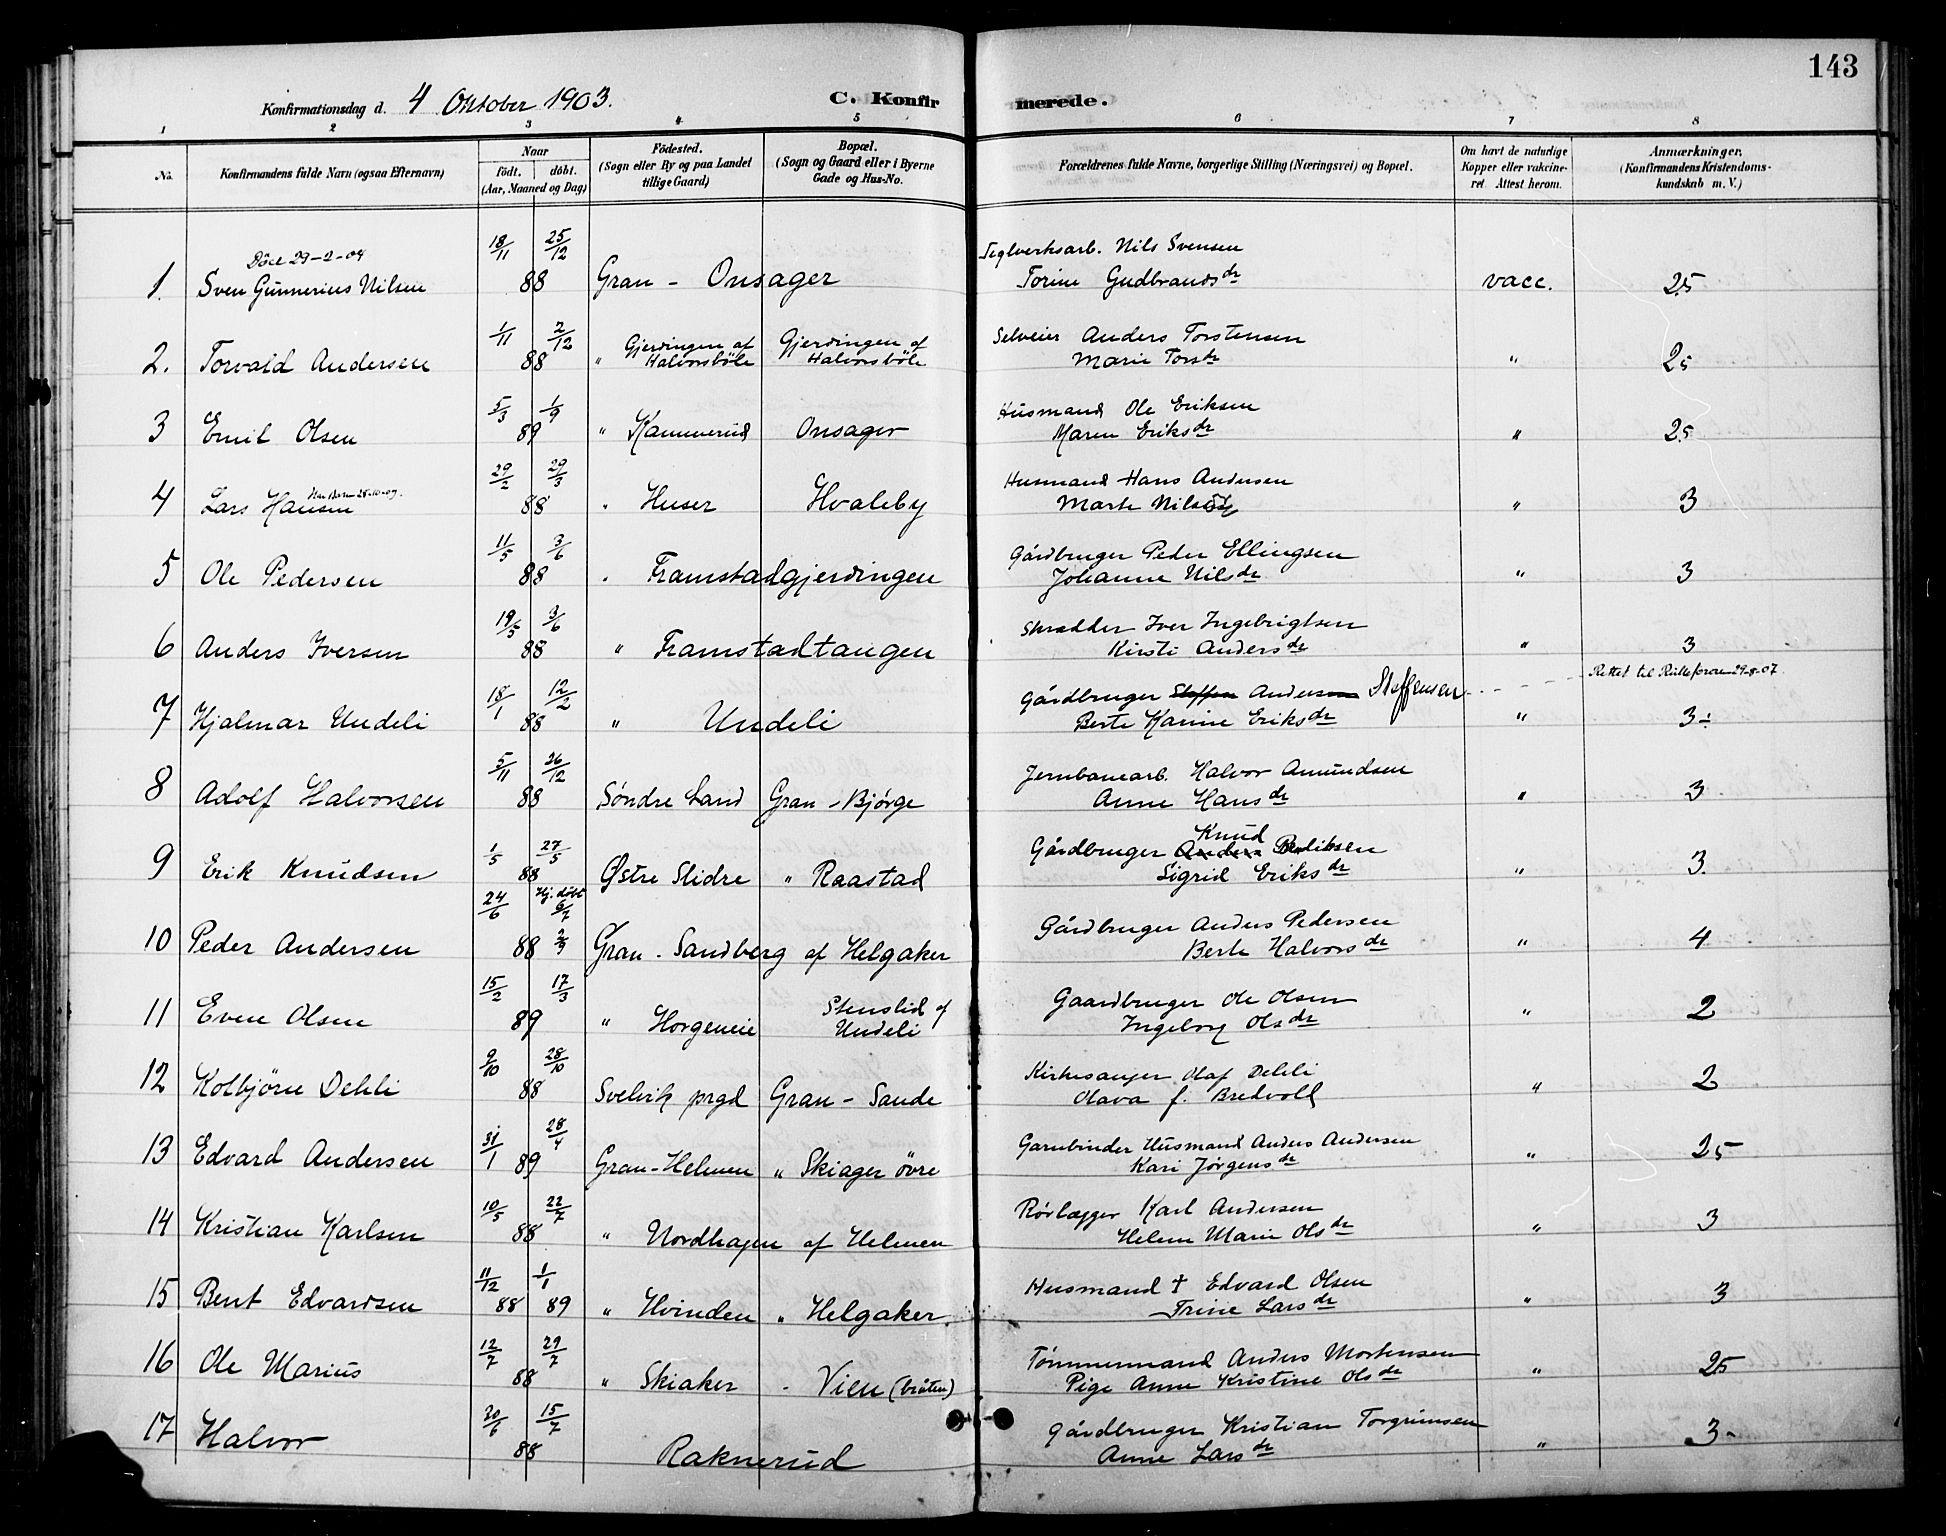 143
Konfirmationsdag d. 4 Oktober 1903.
C. Konfirmerede.
1 2 3 4 5 6 7 8
No.
Konfirmandens fulde Navn (ogsaa Efternavn)
Naar
födt. döbt.
(Aar, Maaned og Dag)
Födested.
(Sogn eller By og paa Landet
tillige Gaard)
Bopæl.
(Sogn og Gaard eller i Byerne
Gade og Hus-No.
Forældrenes fulde Navne, borgerlige Stilling (Næringsvei) og Bopæl.
Om havt de naturlige
Kopper eller vakcine-
ret. Attest herom.
Anmærkninger,
(Konfirmandens Kristendoms-
kundskab m. V.)
Döel 29-2-04 18/11 25/12 Teglverksarb. Nils Svensen
1. Sven Gunnerius Nilsen 88 Gran - Onsager Torine Gudbrandsdr vacc. 2.5
1/11 2/12 Gjerdingen af Gjerdingen af Selveier Anders Torstensen
2. Torvald Andersen 88 " Halvorsböle Halvorsböle Marie Torsdr " 25
5/3 1/9 Husmand Ole Eriksen
3 Emil Olsen 89 " Kammerud Onsager Maren Eriksdr " 25
29/2 29/3 Husmand Hans Andersen
4 Lars Hansen 88 " Huser Hvaleby Marte Nilsdr " 3
11/5 3/6 Gårdbruger Peder Ellingsen
5 Ole Pedersen 88 " Framstadgjerdingen Johanne Nilsdr " 3
19/5 3/6 Skrædder Iver Ingebrigtsen
6 Anders Iversen 88 " Framstadtangen Kirsti Andersdr " 3
18/1 12/2 Gårdbruger Steffen Andersen Steffensen Rettet til 29-8-07
7 Hjalmar Undeli 88 " Undeli Berte Karine Eriksdr " 3-
5/11 26/12 Jernbanearb. Halvor Amundsen
8 Adolf Halvorsen 88 Søndre Land Gran - Bjørge Anne Hansdr " 3
1/5 27/5 Gårdbruger Anders Knud
9 Erik Knudsen 88 Østre Slidre " Raastad Sigrid Eriksdr " 3.
24/6 Hj. døbt 6/7 Gårdbruger Anders Pedersen
10 Peder Andersen 88 2/9 Gran - Sandberg af Helgaker Berte Halvorsdr " 4
15/2 17/3 Stenslid af Gaardbruger Ole Olsen
11 Even Olsen 89 " Horgeneie Undeli Ingeborg Olsdr " 2
9/10 28/10 Kirkesanger Olaf Dehli
12 Kolbjörn Dehli 88 Svelvik prgd Gran - Sande Olava f. Bredvold " 2
31/1 28/4 Garnbinder Husmand Anders Andersen
13 Edvard Andersen 89 Gran - Helmen " Skiager övre Kari Jørgensdr " 25
10/5 22/7 Rörlægger Karl Andersen
14 Kristian Karlsen 88 " Nordhagen af Helmen Helene Marie Olsdr " 3
11/12 1/1 Husmand † Edvard Olsen
15 Bent Edvardsen 88 89 " Hvinden " Helgaker Trine Larsdr " 3
12/7 29/7 Tømmermand Anders Mortensen
16 Ole Marius 88 " Skiaker - Vien (bråten) Pige Anne Kristine Olsdr " 25
20/6 15/7 Gårdbruger Kristian Torgrimsen
17 Halvor 88 Raknerud Anne Larsdr " 3-